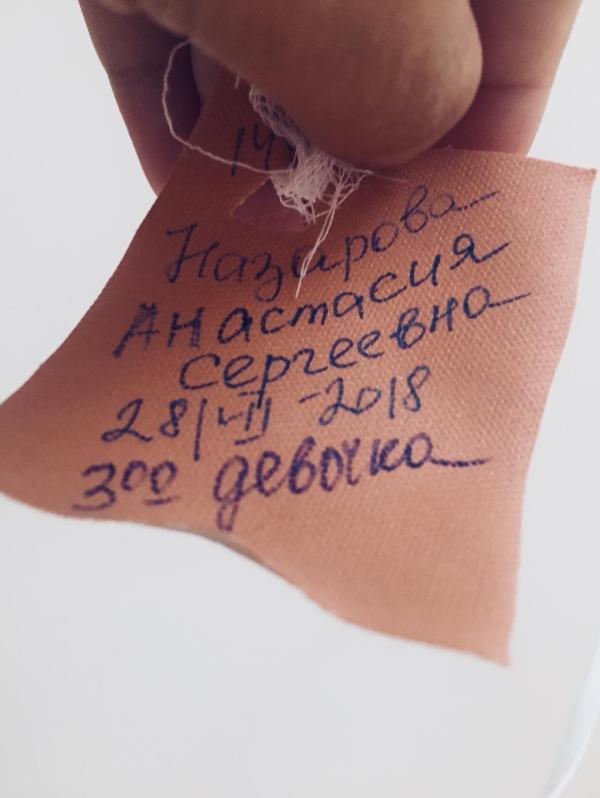 Назарова
Анастасия
Сергеевна
28/VII-2018
3⁰⁰ девочка